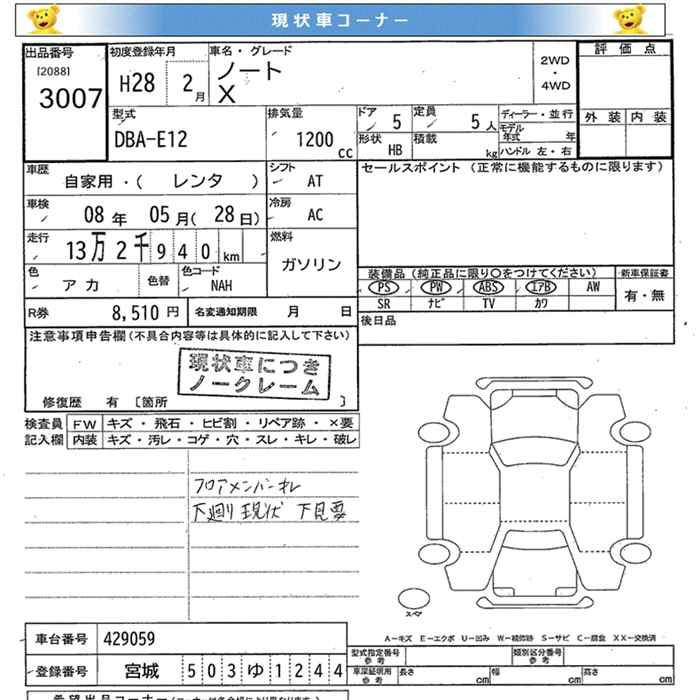 現状車コーナー
出品番号 初度登録年月 車名・グレード 評価点
[2088] 3007 H28 2月 ノート X 2WD・4WD
外装 内装
型式 排気量 ドア 定員 ディーラー・並行
DBA-E12 1200cc 5 5人 モデル年式 年
形状 HB 積載 kg ハンドル 左・右
車歴 シフト セールスポイント (正常に機能するものに限ります)
自家用・( レンタ ) AT
車検 冷房
08年 05月(28日) AC
走行 燃料
13万2千940km ガソリン
色 色替 色コード 装備品(純正品に限り〇をつけてください) 新車保証書
アカ NAH PS PW ABS エアB AW 有・無
SR ナビ TV カワ
R券 8,510円 名変通知期限 月 日 後日品
注意事項申告欄(不具合内容等は具体的に記入して下さい)
現状車につき
ノークレーム
修復歴 有 〔箇所 〕
検査員 FW キズ・飛石・ヒビ割・リペア跡・×要
記入欄 内装 キズ・汚レ・コゲ・穴・スレ・キレ・破レ
フロアメンバーキレ
下廻り現状 下見要
スペア
車台番号 429059 A-キズ E-エクボ U-凹み W-補修跡 S-サビ C-腐食 XX-交換済
型式指定番号 参考 類別区分番号 参考
登録番号 宮城 503 ゆ 1244 車庫証明用 参考 長さ cm 幅 cm 高さ cm